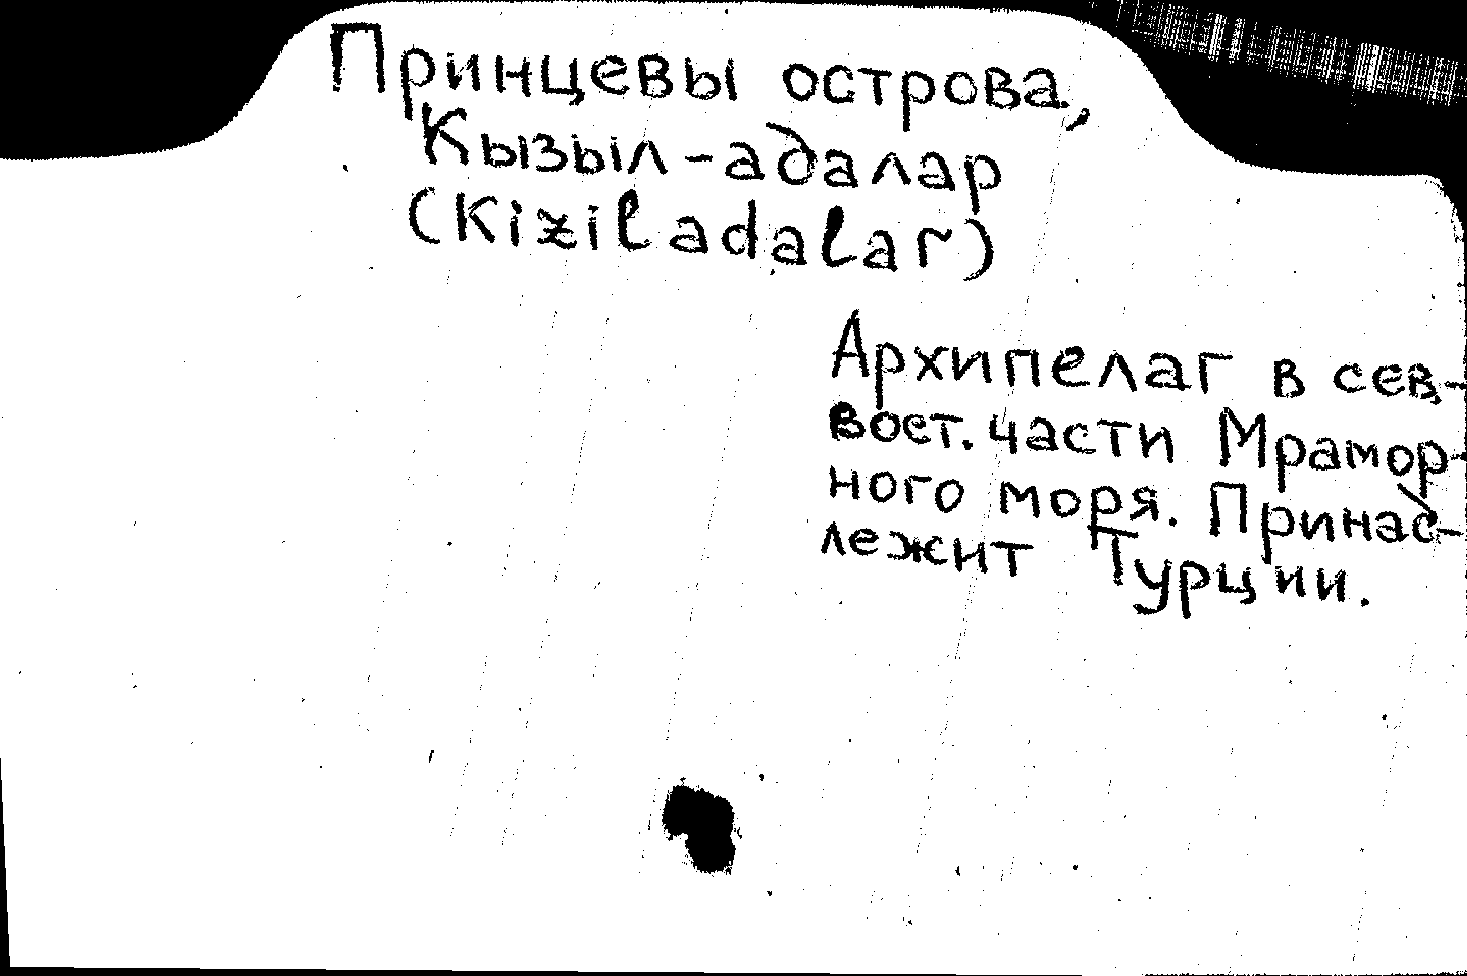 Принцевы острова,
Кызыл-адалар
(Kizil adalar)
Архипелаг в сев.-
вост. части Мрамор-
ного моря. Принад-
лежит Турции.